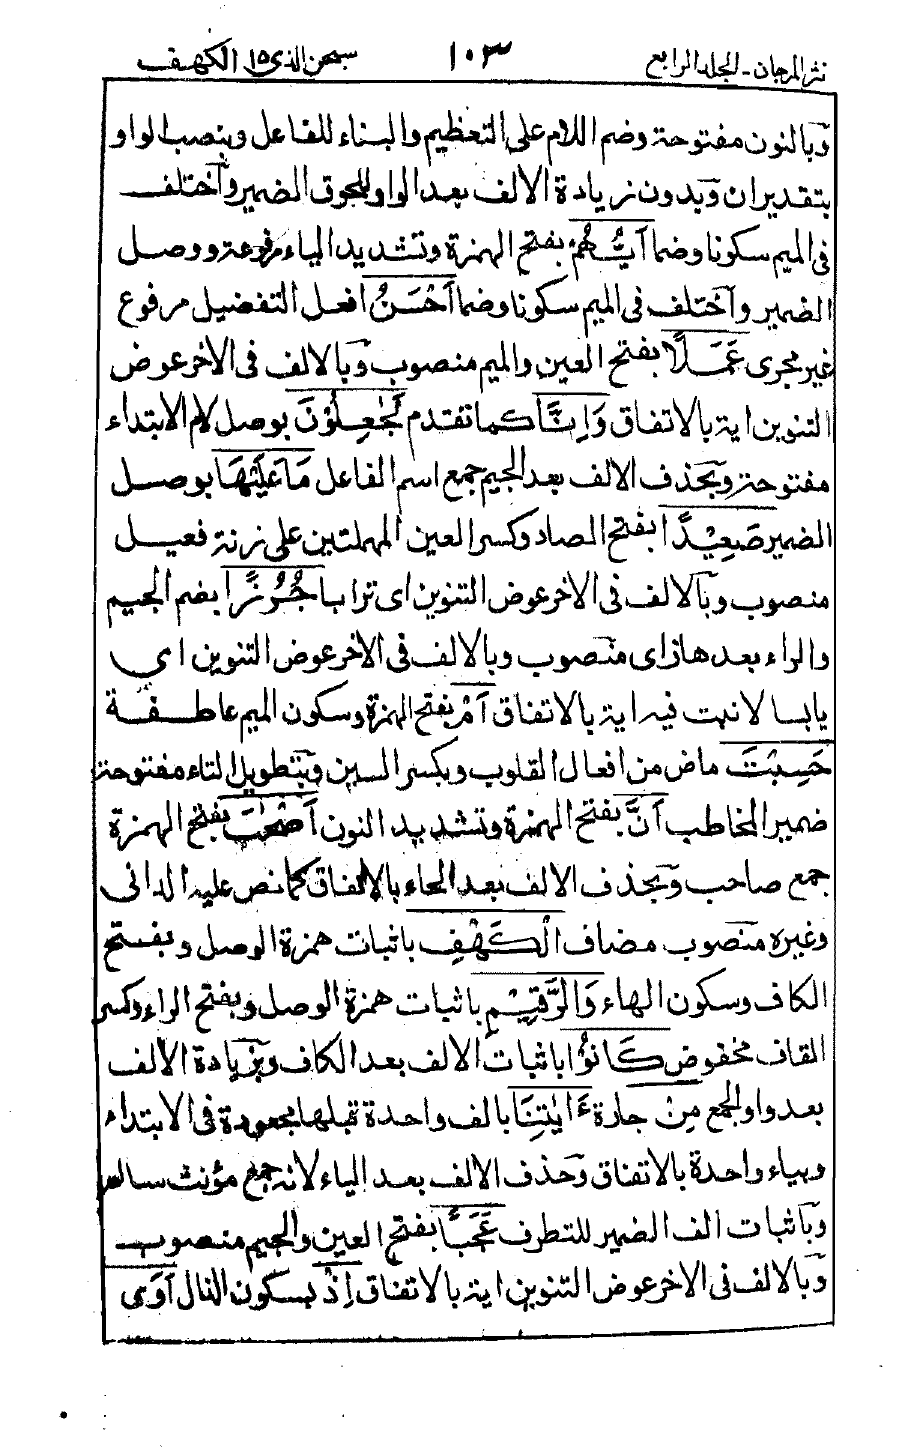 نثر المرجان - الجلد الرابع ١٠٣ سبحن الذى ١٥ الكهف
وَبالنون مفتوحة وضم اللام على التعظيم والبناء للفاعل وبنصب الواو
بتقدير ان وَبدون زيادة الالف بعد الواو للحوق الضمير وَاختلف
فى الميم سكونا وضما اَيُّهُمْ بفتح الهمزة وتشديد الياء مرفوعة ووصل
الضمير وآختلف فى الميم سكونا وضما اَحْسَنُ افعل التفضيل مرفوع
غير مجرى عَمَلًا بفتح العين والميم منصوب وَبالالف فى الاخر عوض
التنوين اية بالاتفاق وَاِنَّا كما تقدم لَجٰعِلُوْنَ بوصل لام الابتداء
مفتوحة وَبحذف الالف بعد الجيم جمع اسم الفاعل مَا عَلَيْهَا بوصل
الضمير صَعِيْدًا بفتح الصاد وكسر العين المهملتين على زنة فعيل
منصوب وبآلالف فى الاخر عوض التنوين اى ترابا جُرُزًا بضم الجيم
والراء بعدها زاى منصوب وبالالف فى الاخر عوض التنوين اى
يابسا لانبت فيه اية بالاتفاق اَمْ بفتح الهمزة وسكون الميم عاطفة
حَسِبْتَ ماض من افعال القلوب وبكسر السين وبتطويل التاء مفتوحة
ضمير المخاطب اَنَّ بفتح الهمزة وتشديد النون اَصْحٰبَ بفتح الهمزة
جمع صاحب وَبحذف الالف بعد الحاء بالاتفاق كما نص عليه الدانى
وغيره منصوب مضاف الْكَهْفِ باثبات همزة الوصل وبفتح
الكاف وسكون الهاء وَالرَّقِيْمِ باثبات همزة الوصل وبفتح الراء وكسر
القاف مخفوض كَانُوْا باثبات الالف بعد الكاف وَبزيادة الالف
بعد واو الجمع مِنْ جارة ءَايٰتِنَا بالف واحدة قبلها مجعودة فى الابتداء
وبياء واحدة بالاتفاق وَحذف الالف بعد الياء لانه جمع مؤنث سالم
وَباثبات الف الضمير للتطرف عَجَبًا بفتح العين والجيم منصوب
وَبالالف فى الاخر عوض التنوين اية بالاتفاق اِذْ بسكون الذال اَوَى